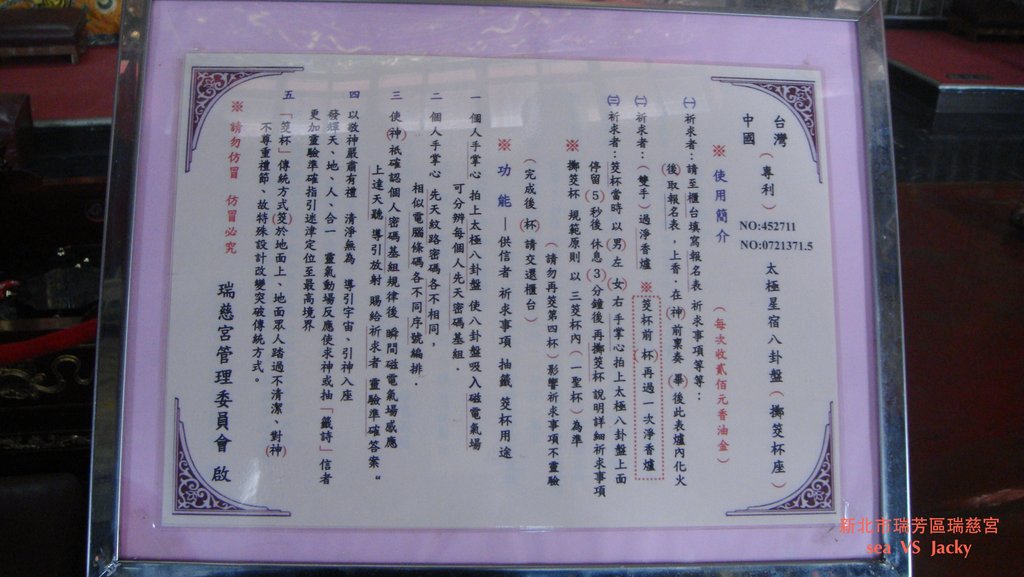 台灣
中國
(專利)
NO:452711
NO:0721371.5
太極星宿八卦盤(擲筊杯座)
※ 使用簡介
(每次收貳佰元香油金)
㈠ 祈求者:請至櫃台填寫報名表 祈求事項等等:
(後)取報名表,上香.在(神)前稟奏(畢)後此表爐內化火
㈡ 祈求者:(雙手)過淨香爐
※ 筊杯前(杯)再過一次淨香爐
㈢ 祈求者:筊杯當時 以(男)左(女)右 手掌心拍上太極八卦盤上面
停留(5)秒後 休息(3)分鐘後 再擲筊杯 說明詳細祈求事項
※ 擲筊杯 規範原則 以 三筊杯內(一聖杯)為準
(請勿再筊第四杯)影響祈求事項不靈驗
(完成後(杯)請交還櫃台)
※ 功能—供信者 祈求事項 抽籤 筊杯用途
一 個人手掌心 拍上太極八卦盤 使八卦盤吸入磁電氣場
可分辨每個人先天密碼基組.
二 個人手掌心 先天紋路密碼各不相同,
相似電腦條碼各不同序號編排.
三 使(神)祇確認個人密碼基組規律後 瞬間磁電氣場感應
上達天聽 導引放射 賜給祈求者 靈驗準確答案。
四 以敬神嚴肅有禮 清淨無為 導引宇宙、引神入座
發輝天、地、人、合一 靈氣動場反應使求神或抽「籤詩」信者
更加靈驗準確指引迷津定位至最高境界
五 「筊杯」傳統方式(筊)於地面上、地面眾人踏過不清潔、對(神)
不尊重禮節、故特殊設計改變突破傳統方式。
※ 請勿仿冒 仿冒必究
瑞慈宮管理委員會 啟
新北市瑞芳區瑞慈宮
sea VS Jacky